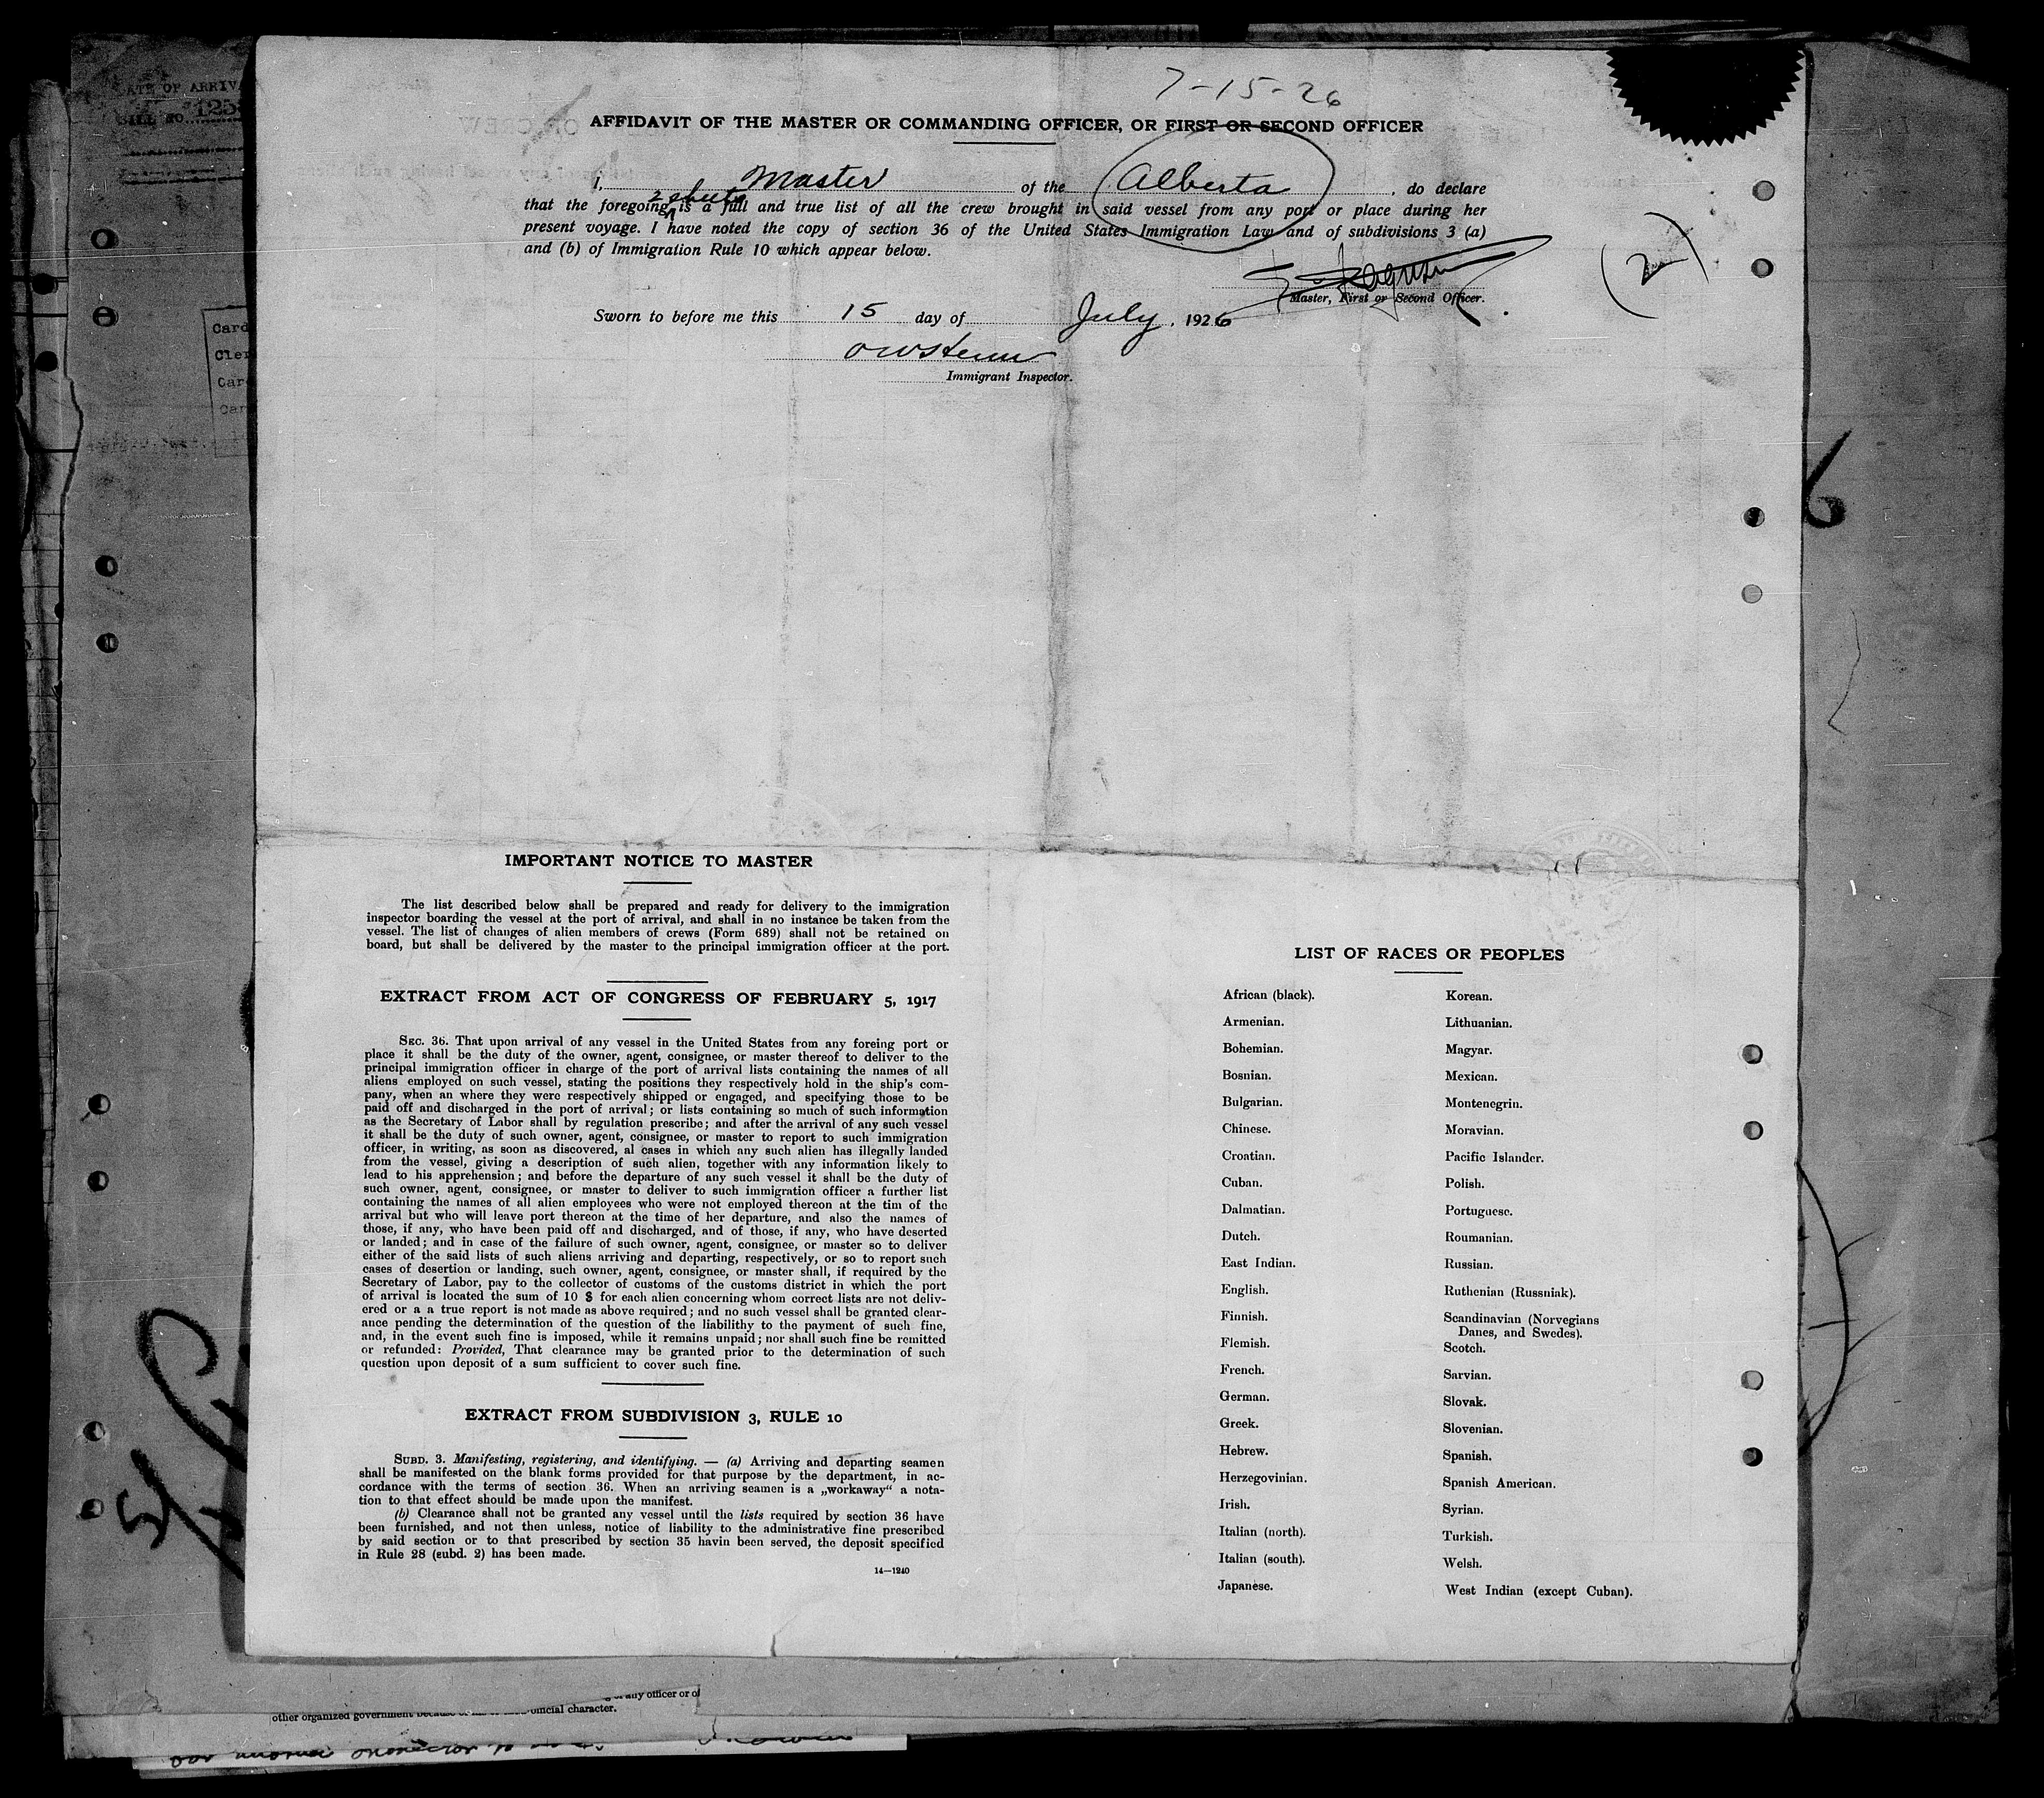 7-15-26
AFFIDAVIT OF THE MASTER OR COMMANDING OFFICER, OR FIRST OR SECOND OFFICER
I, Master of the Alberta, do declare
2 sheets
that the foregoing is a full and true list of all the crew brought in said vessel from any port or place during her
present voyage. I have noted the copy of section 36 of the United States Immigration Law and of subdivisions 3 (a)
and (b) of Immigration Rule 10 which appear below.
(2)
Master, First or Second Officer.
Sworn to before me this 15 day of July, 1926
Immigrant Inspector.
IMPORTANT NOTICE TO MASTER
The list described below shall be prepared and ready for delivery to the immigration
inspector boarding the vessel at the port of arrival, and shall in no instance be taken from the
vessel. The list of changes of alien members of crews (Form 689) shall not be retained on
board, but shall be delivered by the master to the principal immigration officer at the port.
EXTRACT FROM ACT OF CONGRESS OF FEBRUARY 5, 1917
SEC. 36. That upon arrival of any vessel in the United States from any foreing port or
place it shall be the duty of the owner, agent, consignee, or master thereof to deliver to the
principal immigration officer in charge of the port of arrival lists containing the names of all
aliens employed on such vessel, stating the positions they respectively hold in the ship's com-
pany, when an where they were respectively shipped or engaged, and specifying those to be
paid off and discharged in the port of arrival; or lists containing so much of such information
as the Secretary of Labor shall by regulation prescribe; and after the arrival of any such vessel
it shall be the duty of such owner, agent, consignee, or master to report to such immigration
officer, in writing, as soon as discovered, al cases in which any such alien has illegally landed
from the vessel, giving a description of such alien, together with any information likely to
lead to his apprehension; and before the departure of any such vessel it shall be the duty of
such owner, agent, consignee, or master to deliver to such immigration officer a further list
containing the names of all alien employees who were not employed thereon at the tim of the
arrival but who will leave port thereon at the time of her departure, and also the names of
those, if any, who have been paid off and discharged, and of those, if any, who have deserted
or landed; and in case of the failure of such owner, agent, consignee, or master so to deliver
either of the said lists of such aliens arriving and departing, respectively, or so to report such
cases of desertion or landing, such owner, agent, consignee, or master shall, if required by the
Secretary of Labor, pay to the collector of customs of the customs district in which the port
of arrival is located the sum of 10 $ for each alien concerning whom correct lists are not deliv-
ered or a a true report is not made as above required; and no such vessel shall be granted clear-
ance pending the determination of the question of the liabilithy to the payment of such fine,
and, in the event such fine is imposed, while it remains unpaid; nor shall such fine be remitted
or refunded: Provided, That clearance may be granted prior to the determination of such
question upon deposit of a sum sufficient to cover such fine.
EXTRACT FROM SUBDIVISION 3, RULE 10
SUBD. 3. Manifesting, registering, and identifying. — (a) Arriving and departing seamen
shall be manifested on the blank forms provided for that purpose by the department, in ac-
cordance with the terms of section 36. When an arriving seamen is a „workaway“ a nota-
tion to that effect should be made upon the manifest.
(b) Clearance shall not be granted any vessel until the lists required by section 36 have
been furnished, and not then unless, notice of liability to the administrative fine prescribed
by said section or to that prescribed by section 35 havin been served, the deposit specified
in Rule 28 (subd. 2) has been made.
14—1240
LIST OF RACES OR PEOPLES
African (black).
Armenian.
Bohemian.
Bosnian.
Bulgarian.
Chinese.
Croatian.
Cuban.
Dalmatian.
Dutch.
East Indian.
English.
Finnish.
Flemish.
French.
German.
Greek.
Hebrew.
Herzegovinian.
Irish.
Italian (north).
Italian (south).
Japanese.
Korean.
Lithuanian.
Magyar.
Mexican.
Montenegrin.
Moravian.
Pacific Islander.
Polish.
Portuguese.
Roumanian.
Russian.
Ruthenian (Russniak).
Scandinavian (Norvegians
Danes, and Swedes).
Scotch.
Sarvian.
Slovak.
Slovenian.
Spanish.
Spanish American.
Syrian.
Turkish.
Welsh.
West Indian (except Cuban).
other organized government
official character.